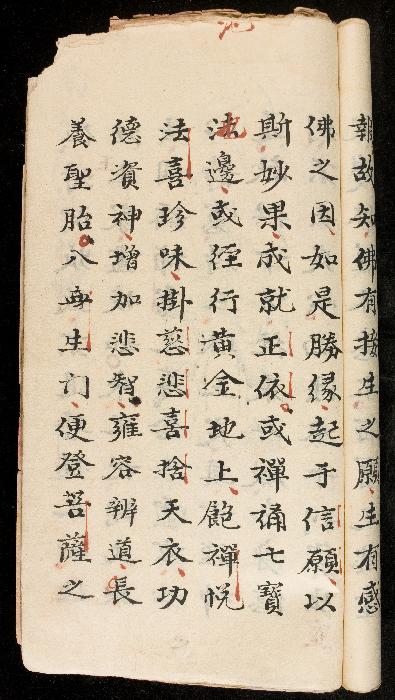 報故知佛有接生之願生有感
佛之因如是勝緣起于信願以
斯妙果成就正依或禪誦七寶
池邊或徑行黄金地上飽禪悅
法喜珍味掛慈悲喜捨天衣功
德資神增加悲智雍容辨道長
養聖胎入無生门便登菩薩之